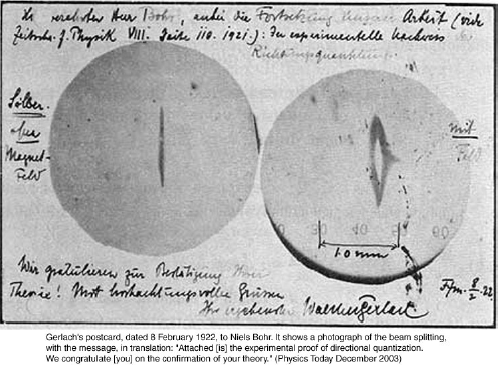 verehrter Herr Bohr, anbei die Fortsetzung unserer Arbeit (vide
Zeitschr. f. Physik VIII. Seite 110. 1921.): Der experimentelle Nachweis
Richtungsquantelung.
Silber
ohne
Magnet-
Feld
mit
Feld
1.0 mm
Wir gratulieren zur Bestätigung Ihrer
Theorie! Mit hochachtungsvollen Grüssen
Ihr ergebenster Walther Gerlach
Ffm. 8/2. 22.
Gerlach's postcard, dated 8 February 1922, to Niels Bohr. It shows a photograph of the beam splitting,
with the message, in translation: "Attached [is] the experimental proof of directional quantization.
We congratulate [you] on the confirmation of your theory." (Physics Today December 2003)